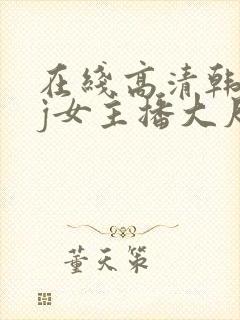 在綫高清韩
j女主播大尺
董天策